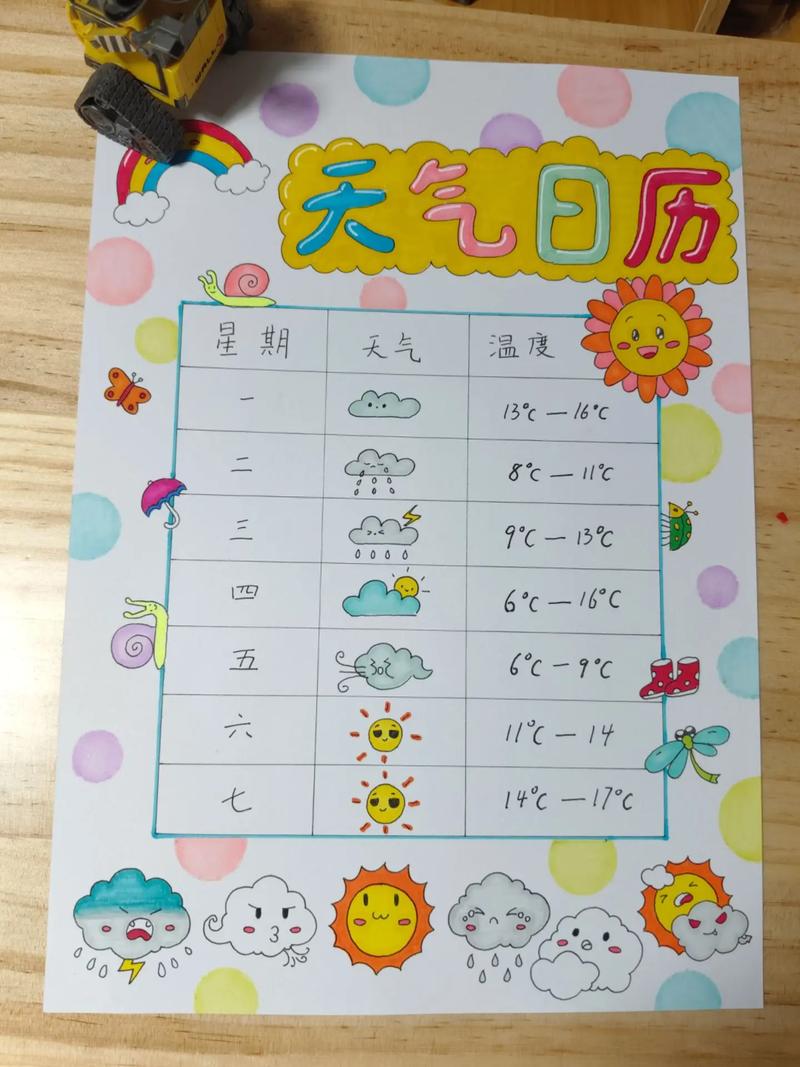 WALL·E
天气日历
星期 天气 温度
一 13°C — 16°C
二 8°C — 11°C
三 9°C — 13°C
四 6°C — 16°C
五 6°C — 9°C
六 11°C — 14
七 14°C — 17°C